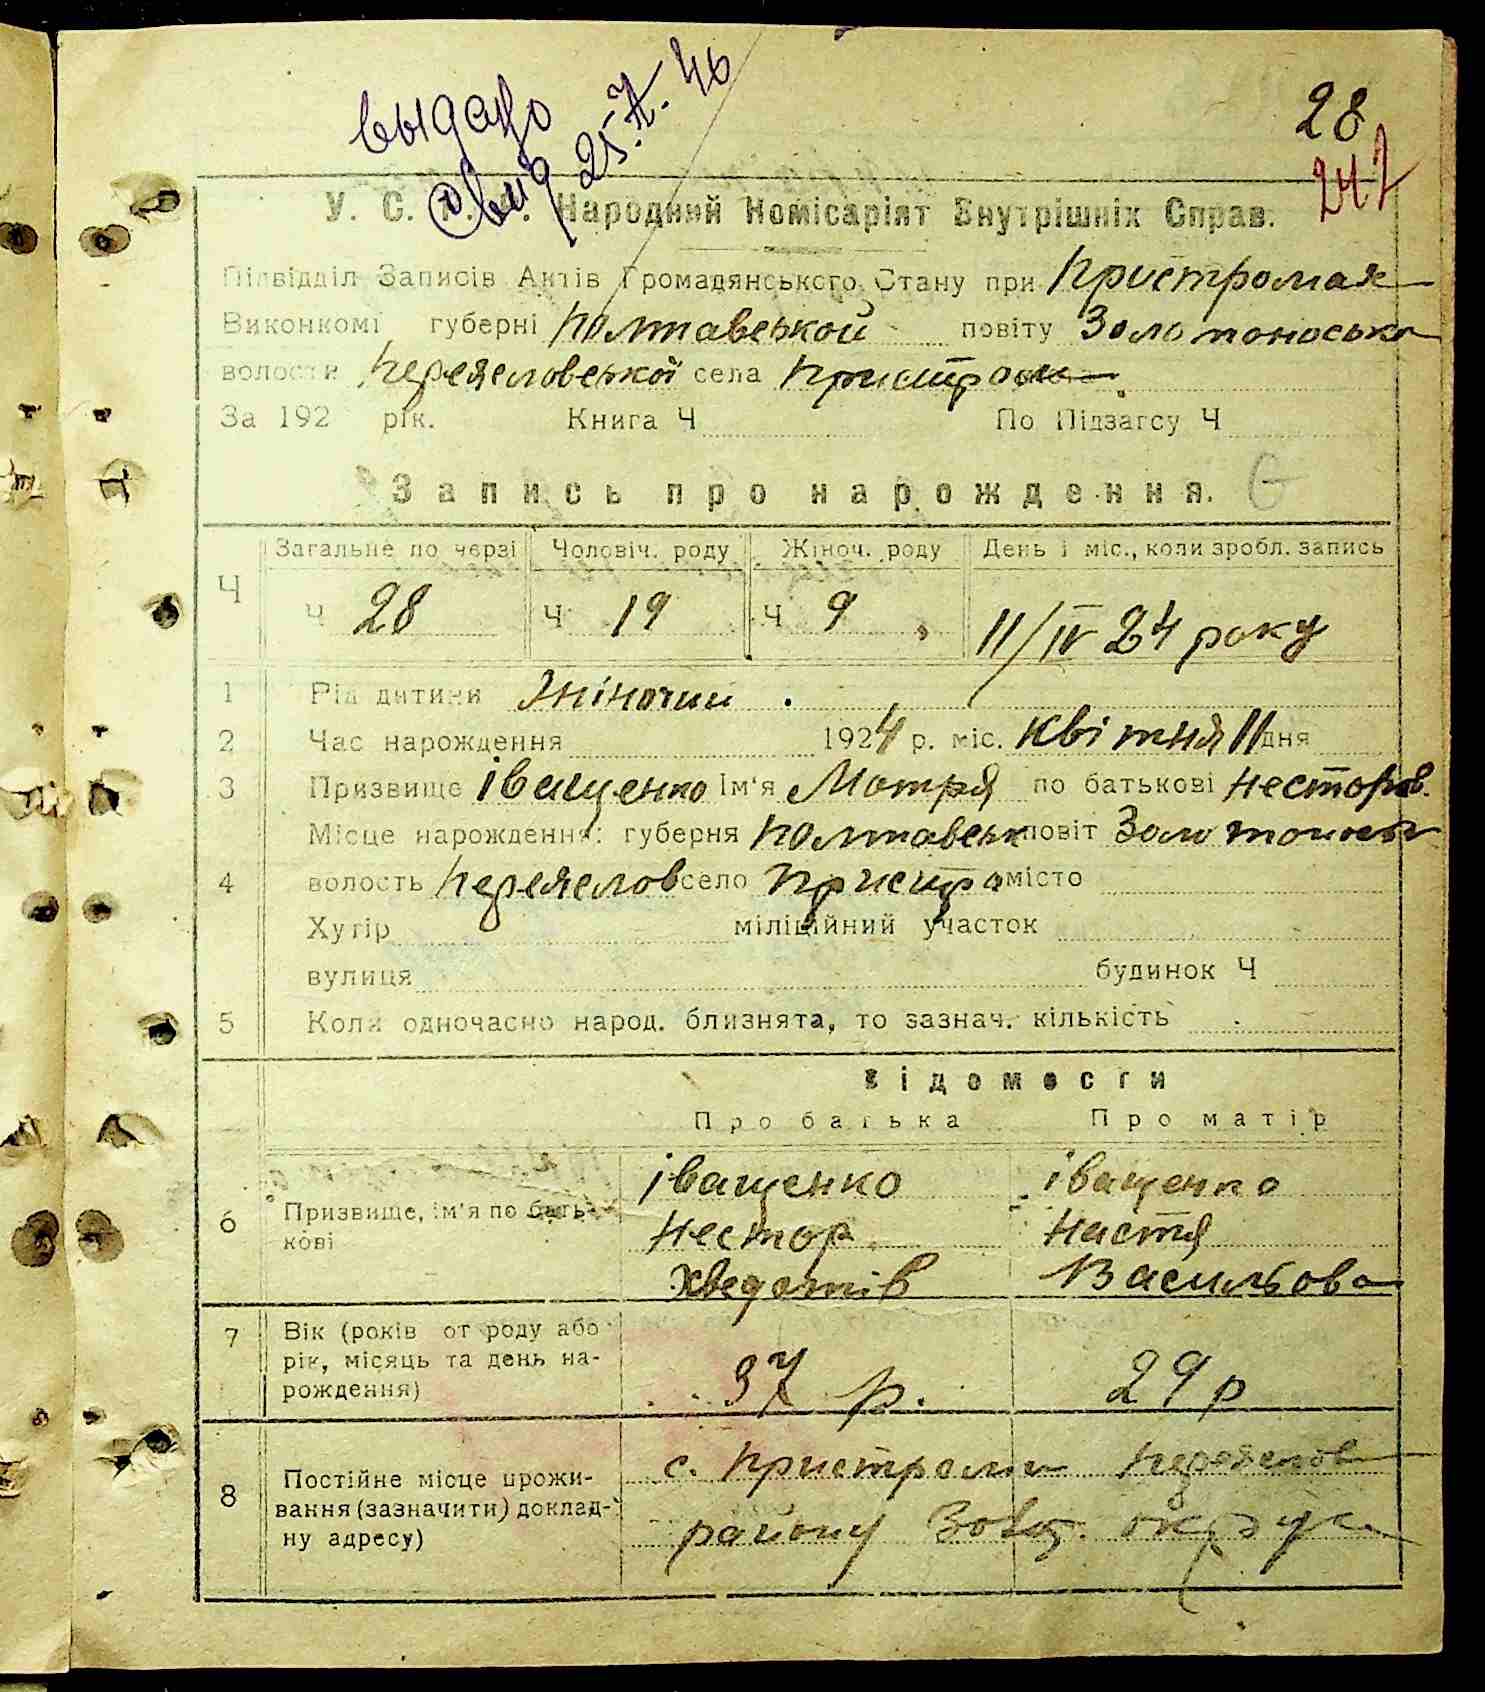 выдано
свид 25. . 46
28
242
У. С. Р. Р. Народний Комісаріят Внутрішніх Справ.
Підвідділ Записів Актів Громадянського Стану при Пристромах
Виконкомі губерні Полтавської повіту Золотоносько
волости Переясловської села Пристроми
За 192 рік. Книга Ч По Підзагсу Ч
Запись про нарождення.
Ч Загальне по черзі Чоловіч. роду Жіноч. роду День і міс., коли зробл. запись
Ч 28 Ч 19 Ч 9 11/IV 24 року
1 Рід дитини Жіночий
2 Час нарождення 1924 р. міс. Квітня 11 дня
3 Призвище Іващенко Ім'я Мотря по батькові Несторов.
Місце нарождення: губерня Полтавськ повіт Золотонось
4 волость Переяслов село Пристро місто
Хутір міліційний участок
вулиця будинок Ч
5 Коли одночасно народ. близнята, то зазнач. кількість
Відомости
Про батька Про матір
6 Призвище, ім'я по бать-
кові
Іващенко Іващенко
Нестор Настя
Хведотів Васильова
7 Вік (років от роду або
рік, місяць та день на-
рождення)
37 р. 29 р
8 Постійне місце прожи-
вання (зазначити) доклад-
ну адресу)
с. Пристроми Переяслов
району округи